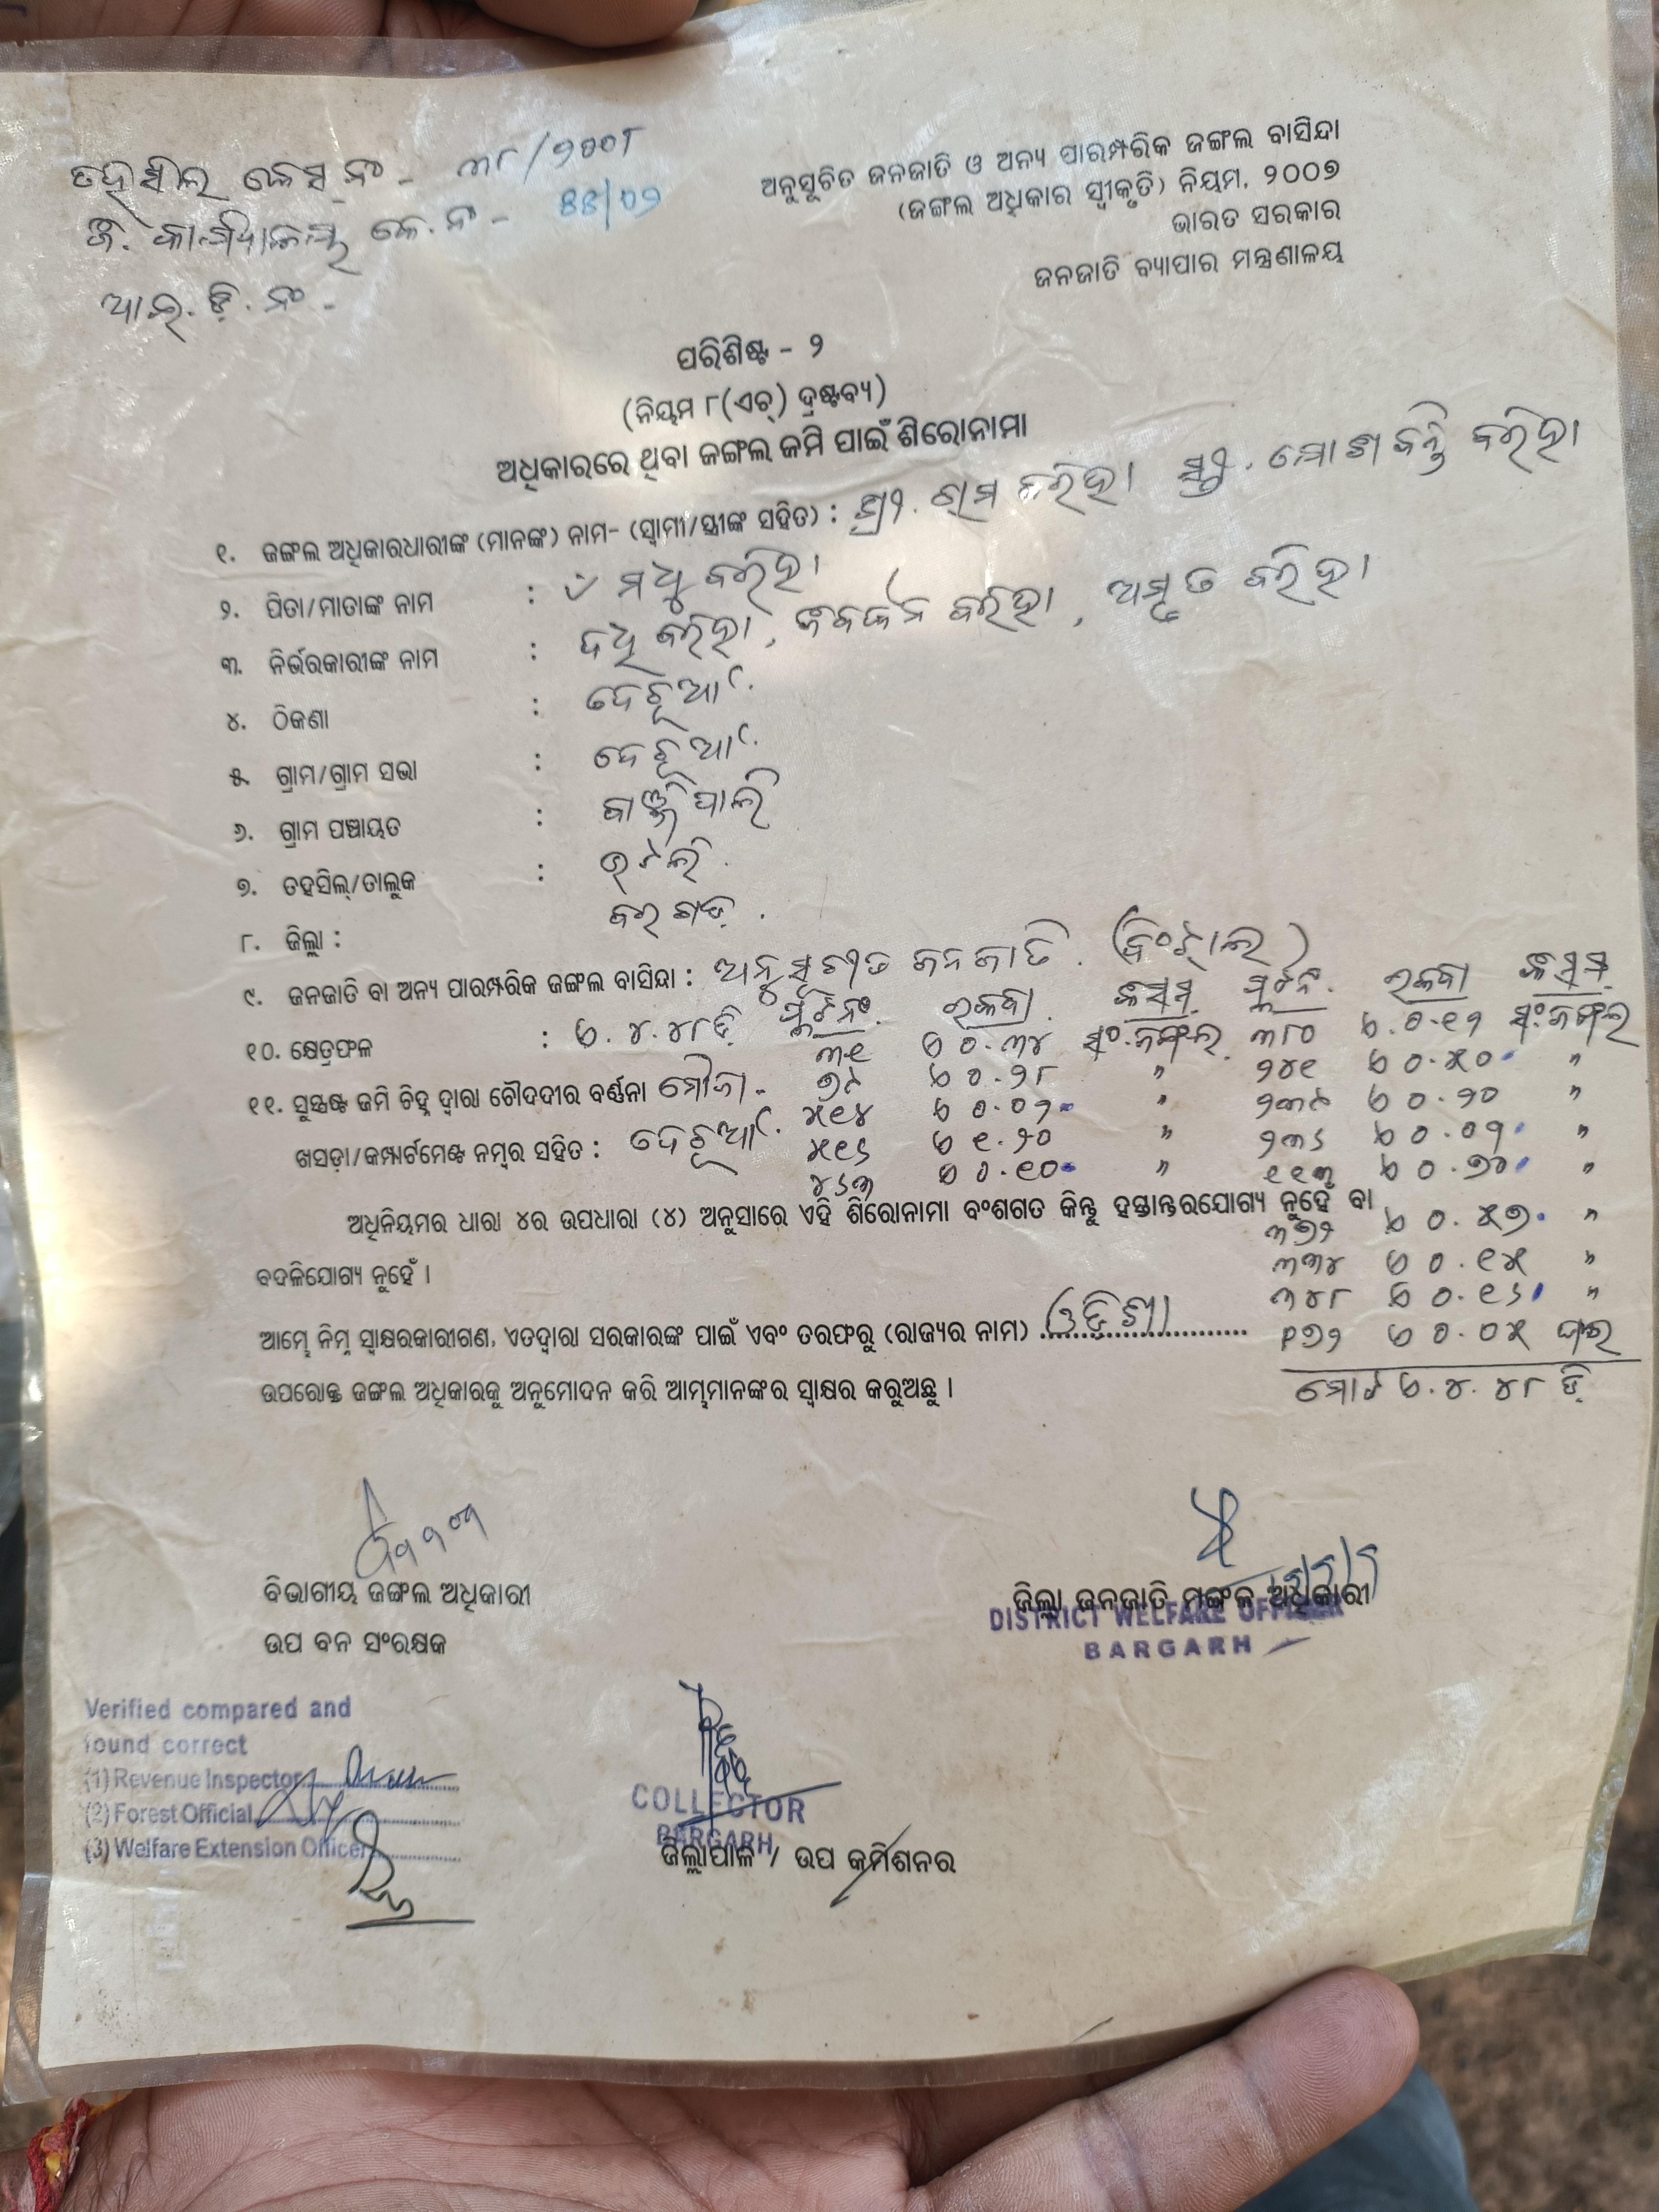 ତହସିଲ କେସ୍ ନଂ - ୩୮/୨୦୦୮
ଜି. କାର୍ଯ୍ୟାଳୟ କେ. ନଂ -
ଆଇ. ଡି. ନଂ -
ଅନୁସୂଚିତ ଜନଜାତି ଓ ଅନ୍ୟ ପାରମ୍ପରିକ ଜଙ୍ଗଲ ବାସିନ୍ଦା
(ଜଙ୍ଗଲ ଅଧିକାର ସ୍ୱୀକୃତି) ନିୟମ, ୨୦୦୭
ଭାରତ ସରକାର
ଜନଜାତି ବ୍ୟାପାର ମନ୍ତ୍ରଣାଳୟ
ପରିଶିଷ୍ଟ - ୨
(ନିୟମ ୮(ଏଚ୍) ଦ୍ରଷ୍ଟବ୍ୟ)
ଅଧିକାରରେ ଥିବା ଜଙ୍ଗଲ ଜମି ପାଇଁ ଶିରୋନାମା
୧. ଜଙ୍ଗଲ ଅଧିକାରଧାରୀଙ୍କ (ମାନଙ୍କ) ନାମ- (ସ୍ୱାମୀ/ସ୍ତ୍ରୀଙ୍କ ସହିତ) : ବରିହା ବରିହା
୨. ପିତା/ମାତାଙ୍କ ନାମ : ମଧୁ ବରିହା
୩. ନିର୍ଭରକାରୀଙ୍କ ନାମ : ଦଧି ବରିହା, ବରିହା, ଅମୃତ ବରିହା
୪. ଠିକଣା : ଦେଚୂଆଁ
୫. ଗ୍ରାମ/ଗ୍ରାମ ସଭା : ଦେଚୂଆଁ
୬. ଗ୍ରାମ ପଞ୍ଚାୟତ :
୭. ତହସିଲ୍/ତାଲୁକ : ଭଟଲି
୮. ଜିଲ୍ଲା : ବରଗଡ଼
୯. ଜନଜାତି ବା ଅନ୍ୟ ପାରମ୍ପରିକ ଜଙ୍ଗଲ ବାସିନ୍ଦା : ଅନୁସୂଚୀତ ଜନଜାତି (ବିଂଝାଲ)
୧୦. କ୍ଷେତ୍ରଫଳ : ଏ. ୪. ୪୮ ଡି
୧୧. ସୁସ୍ପଷ୍ଟ ଜମି ଚିହ୍ନ ଦ୍ୱାରା ଚୌଦଦୀର ବର୍ଣ୍ଣନା ମୌଜା -
ଖସଡ଼ା/କମ୍ପାର୍ଟମେଣ୍ଟ ନମ୍ବର ସହିତ : ଦେଚୂଆଁ
ପ୍ଲଟ ନଂ ରକବା କିସମ
୩୧ ଏ ୦.୩୪ ସଂ.ଜଙ୍ଗଲ
୭୯ ଏ ୦.୨୮ "
୫୧୪ ଏ ୦.୦୨ "
୫୧୬ ଏ ୧.୨୦ "
୪୬୩ ଏ ୦.୧୦ "
ପ୍ଲଟ ନଂ ରକବା କିସମ
୩୮୦ ଏ ୦.୧୨ ସଂ.ଜଙ୍ଗଲ
୨୪୧ ଏ ୦.୫୦ "
୨୩୯ ଏ ୦.୨୦ "
୨୩୬ ଏ ୦.୦୨ "
୧୧୩ "
୩୭୨ ଏ ୦.୫୭ "
୩୩୪ ଏ ୦.୧୫ "
୩୪୮ ଏ ୦.୧୬ "
ଏ ୦.୦୫
ମୋଟ ଏ. ୪. ୪୮ ଡି
ଅଧିନିୟମର ଧାରା ୪ର ଉପଧାରା (୪) ଅନୁସାରେ ଏହି ଶିରୋନାମା ବଂଶଗତ କିନ୍ତୁ ହସ୍ତାନ୍ତରଯୋଗ୍ୟ ନୁହେଁ ବା
ବଦଳିଯୋଗ୍ୟ ନୁହେଁ ।
ଆମ୍ଭେ ନିମ୍ନ ସ୍ୱାକ୍ଷରକାରୀଗଣ, ଏତଦ୍ୱାରା ସରକାରଙ୍କ ପାଇଁ ଏବଂ ତରଫରୁ (ରାଜ୍ୟର ନାମ) (ଓଡ଼ିଶା)
ଉପରୋକ୍ତ ଜଙ୍ଗଲ ଅଧିକାରକୁ ଅନୁମୋଦନ କରି ଆମ୍ଭମାନଙ୍କର ସ୍ୱାକ୍ଷର କରୁଅଛୁ ।
ବିଭାଗୀୟ ଜଙ୍ଗଲ ଅଧିକାରୀ
ଉପ ବନ ସଂରକ୍ଷକ
ଜିଲ୍ଲା ଜନଜାତି ମଙ୍ଗଳ ଅଧିକାରୀ
DISTRICT WELFARE OFFICER
BARGARH
Verified compared and
found correct
(1) Revenue Inspector
(2) Forest Official
(3) Welfare Extension Officer
COLLECTOR
BARGARH
ଜିଲ୍ଲାପାଳ / ଉପ କମିଶନର